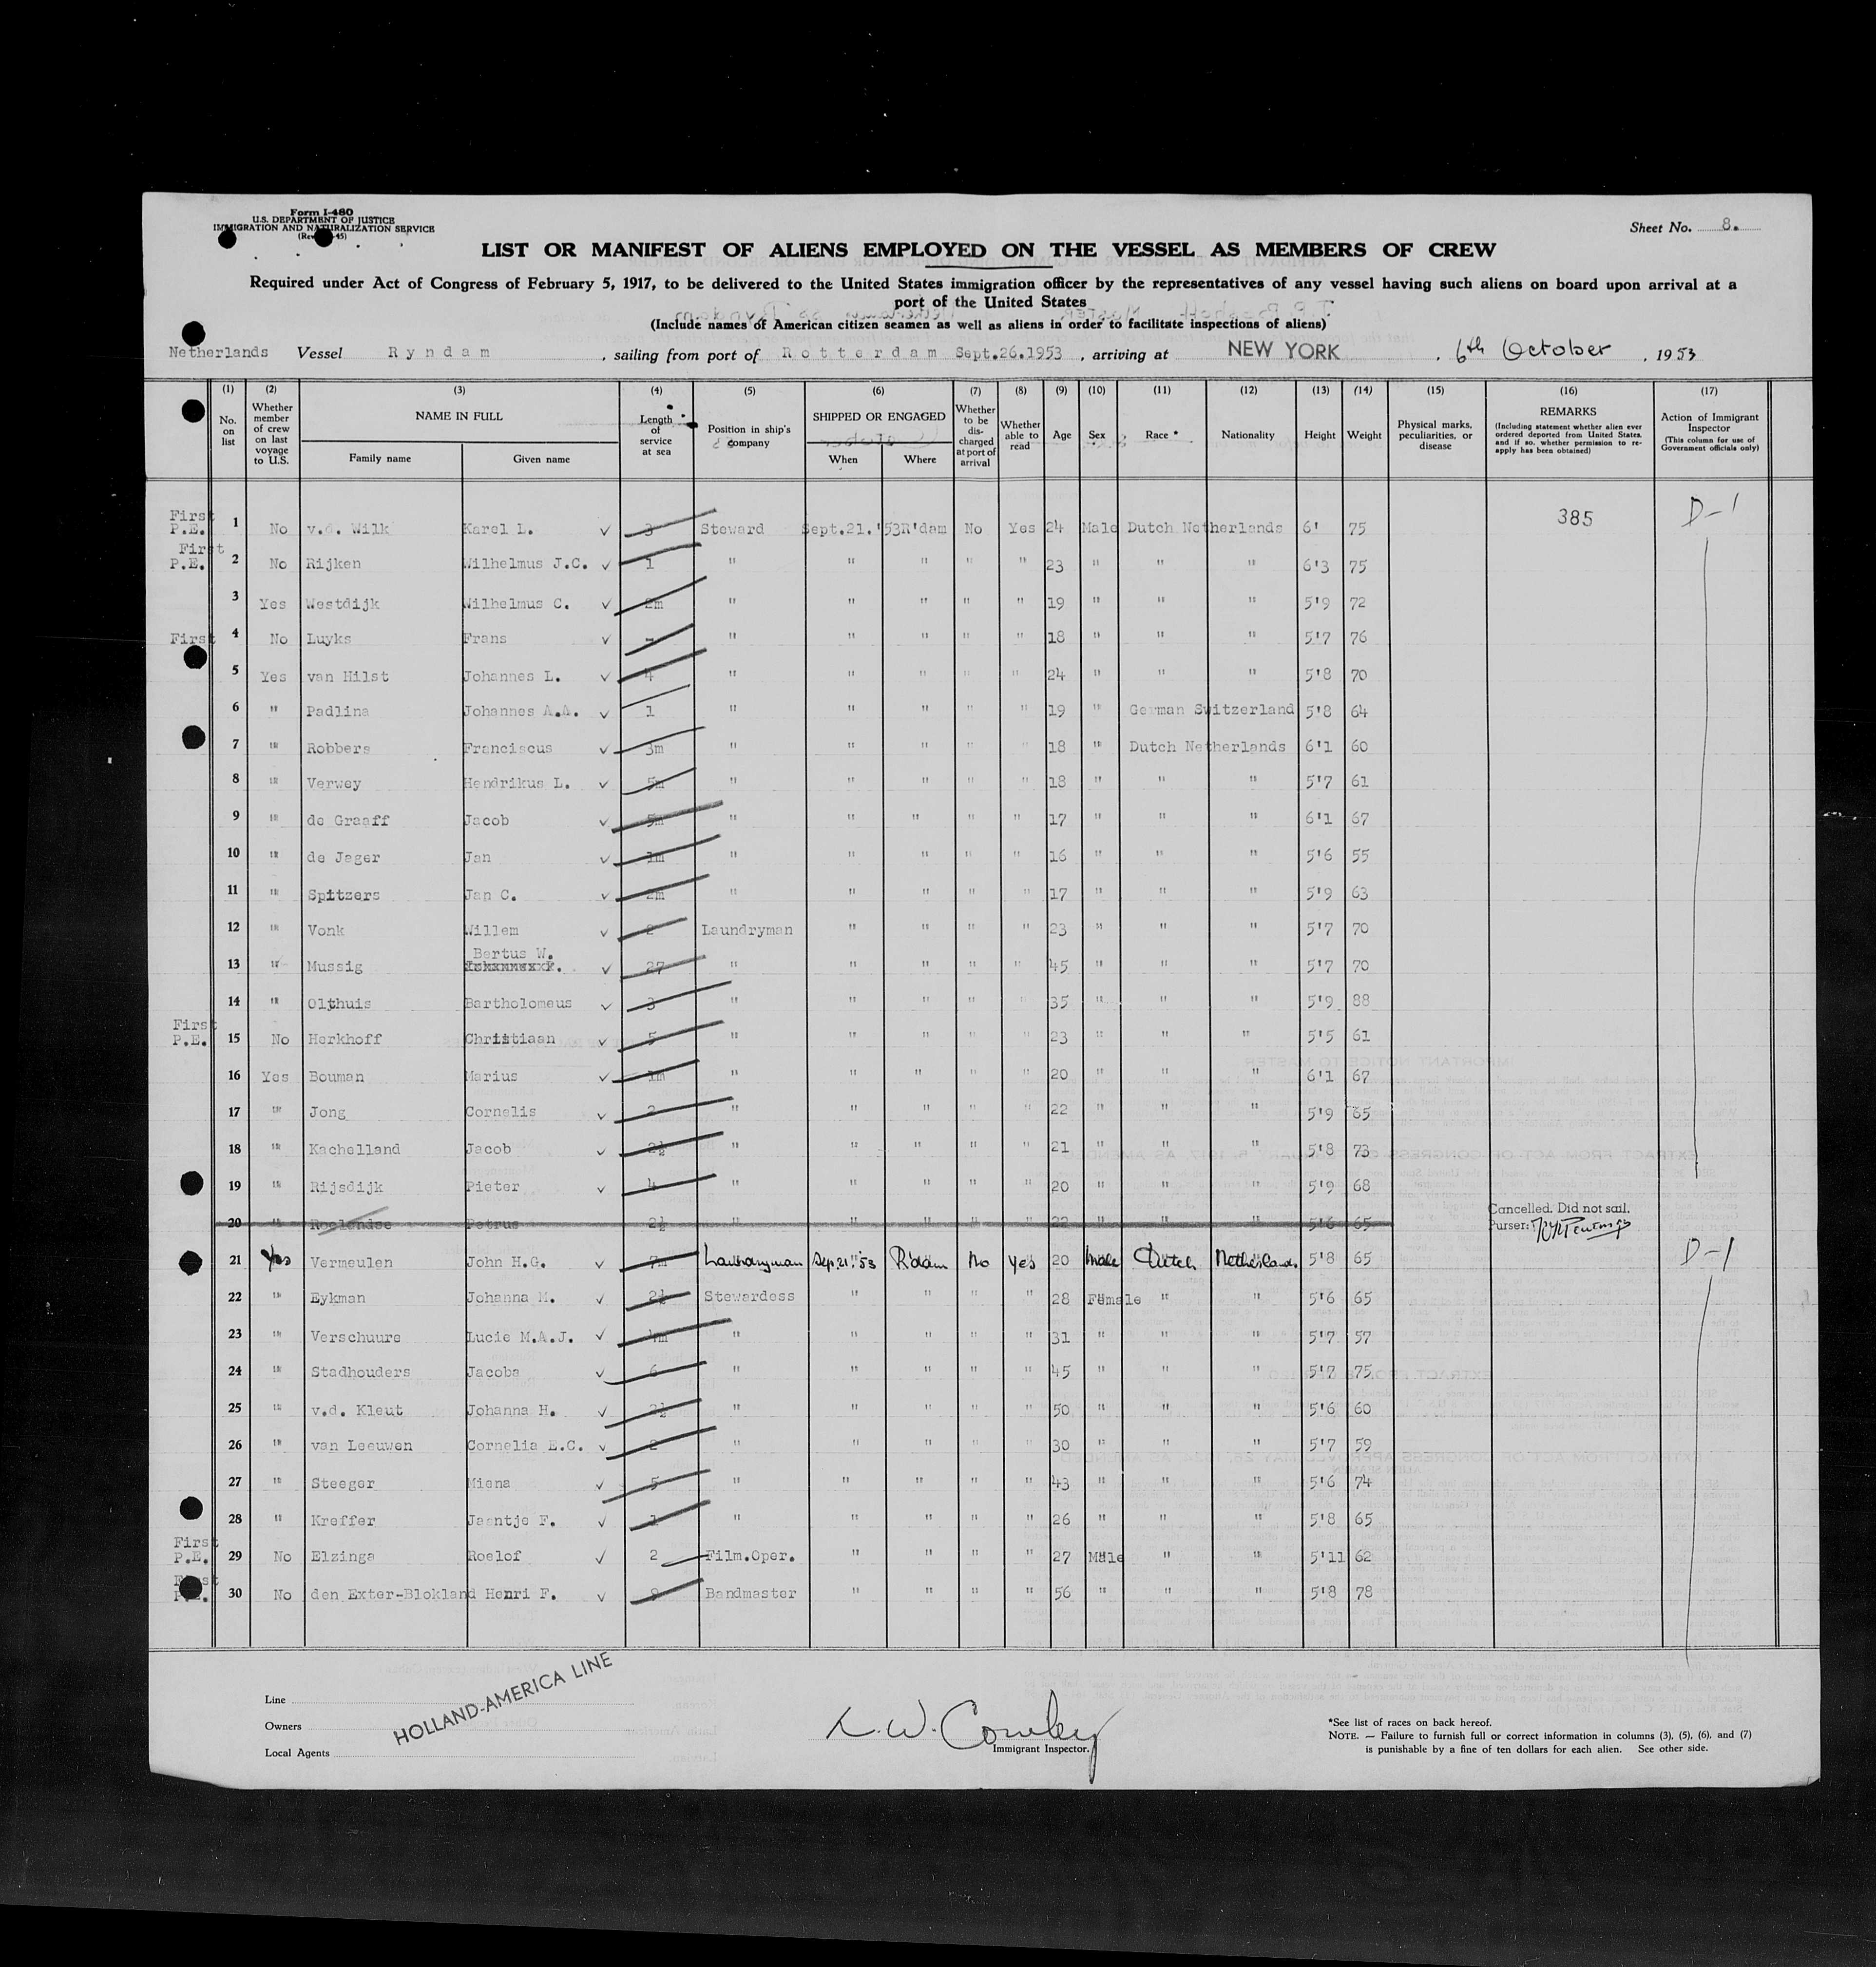 Form I-480
U.S. DEPARTMENT OF JUSTICE
IMMIGRATION AND NATURALIZATION SERVICE
Sheet No. 8.
LIST OR MANIFEST OF ALIENS EMPLOYED ON THE VESSEL AS MEMBERS OF CREW
Required under Act of Congress of February 5, 1917, to be delivered to the United States immigration officer by the representatives of any vessel having such aliens on board upon arrival at a
port of the United States
(Include names of American citizen seamen as well as aliens in order to facilitate inspections of aliens)
Netherlands Vessel Ryndam, sailing from port of Rotterdam Sept.26.1953, arriving at NEW YORK, 6th October, 1953
(1) (2) (3) (4) (5) (6) (7) (8) (9) (10) (11) (12) (13) (14) (15) (16) (17)
No. on list
Whether member of crew on last voyage to U.S.
NAME IN FULL
Family name
Given name
Length of service at sea
Position in ship's company
SHIPPED OR ENGAGED
When
Where
Whether to be discharged at port of arrival
Whether able to read
Age
Sex
Race *
Nationality
Height
Weight
Physical marks, peculiarities, or disease
REMARKS
(Including statement whether alien ever ordered deported from United States, and if so, whether permission to reapply has been obtained)
Action of Immigrant Inspector
(This column for use of Government officials only)
First P.E. 1 No v.d. Wilk Karel L. ✓ 3 Steward Sept.21.'53 R'dam No Yes 24 Male Dutch Netherlands 6' 75 385 D-1
First P.E. 2 No Rijken Wilhelmus J.C. ✓ 1 " " " " " 23 " " " 6'3 75
3 Yes Westdijk Wilhelmus C. ✓ 2m " " " " " 19 " " " 5'9 72
First 4 No Luyks Frans ✓ - " " " " " 18 " " " 5'7 76
5 Yes van Hilst Johannes L. ✓ 4 " " " " " 24 " " " 5'8 70
6 " Padlina Johannes A.A. ✓ 1 " " " " " 19 " German Switzerland 5'8 64
7 " Robbers Franciscus ✓ 3m " " " " " 18 " Dutch Netherlands 6'1 60
8 " Verwey Hendrikus L. ✓ 5m " " " " " 18 " " " 5'7 61
9 " de Graaff Jacob ✓ 5m " " " " " 17 " " " 6'1 67
10 " de Jager Jan ✓ 1m " " " " " 16 " " " 5'6 55
11 " Spitzers Jan C. ✓ 2m " " " " " 17 " " " 5'9 63
12 " Vonk Willem ✓ 2 Laundryman " " " " 23 " " " 5'7 70
13 " Mussig Bertus W. ✓ 27 " " " " " 45 " " " 5'7 70
14 " Olthuis Bartholomeus ✓ 3 " " " " " 35 " " " 5'9 88
First P.E. 15 No Herkhoff Christiaan ✓ 5 " " " " " 23 " " " 5'5 61
16 Yes Bouman Marius ✓ 1m " " " " " 20 " " " 6'1 67
17 " Jong Cornelis ✓ 2 " " " " " 22 " " " 5'9 65
18 " Kachelland Jacob ✓ 2½ " " " " " 21 " " " 5'8 73
19 " Rijsdijk Pieter ✓ 4 " " " " " 20 " " " 5'9 68
20 " Roelandse Petrus 2½ " " " " " 22 " " " 5'6 65 Cancelled. Did not sail.
Purser:
21 Yes Vermeulen John H.G. ✓ 7m Laundryman Sep.21.'53 R'dam No Yes 20 Male Dutch Netherlands 5'8 65 D-1
22 " Eykman Johanna M. ✓ 2½ Stewardess " " " " 28 Female " " 5'6 65
23 " Verschuure Lucie M.A.J. ✓ 4m " " " " " 31 " " " 5'7 57
24 " Stadhouders Jacoba ✓ 6 " " " " " 45 " " " 5'7 75
25 " v.d. Kleut Johanna H. ✓ 2½ " " " " " 50 " " " 5'6 60
26 " van Leeuwen Cornelia E.C. ✓ 2 " " " " " 30 " " " 5'7 59
27 " Steeger Miena ✓ 5 " " " " " 43 " " " 5'6 74
28 " Kreffer Jaantje F. ✓ 1 " " " " " 26 " " " 5'8 65
First P.E. 29 No Elzinga Roelof ✓ 2 Film.Oper. " " " " 27 Male " " 5'11 62
First P.E. 30 No den Exter-Blokland Henri F. ✓ 9 Bandmaster " " " " 56 " " " 5'8 78
Line
Owners
Local Agents
HOLLAND-AMERICA LINE
K.W. Cowley
Immigrant Inspector.
*See list of races on back hereof.
NOTE. — Failure to furnish full or correct information in columns (3), (5), (6), and (7)
is punishable by a fine of ten dollars for each alien. See other side.